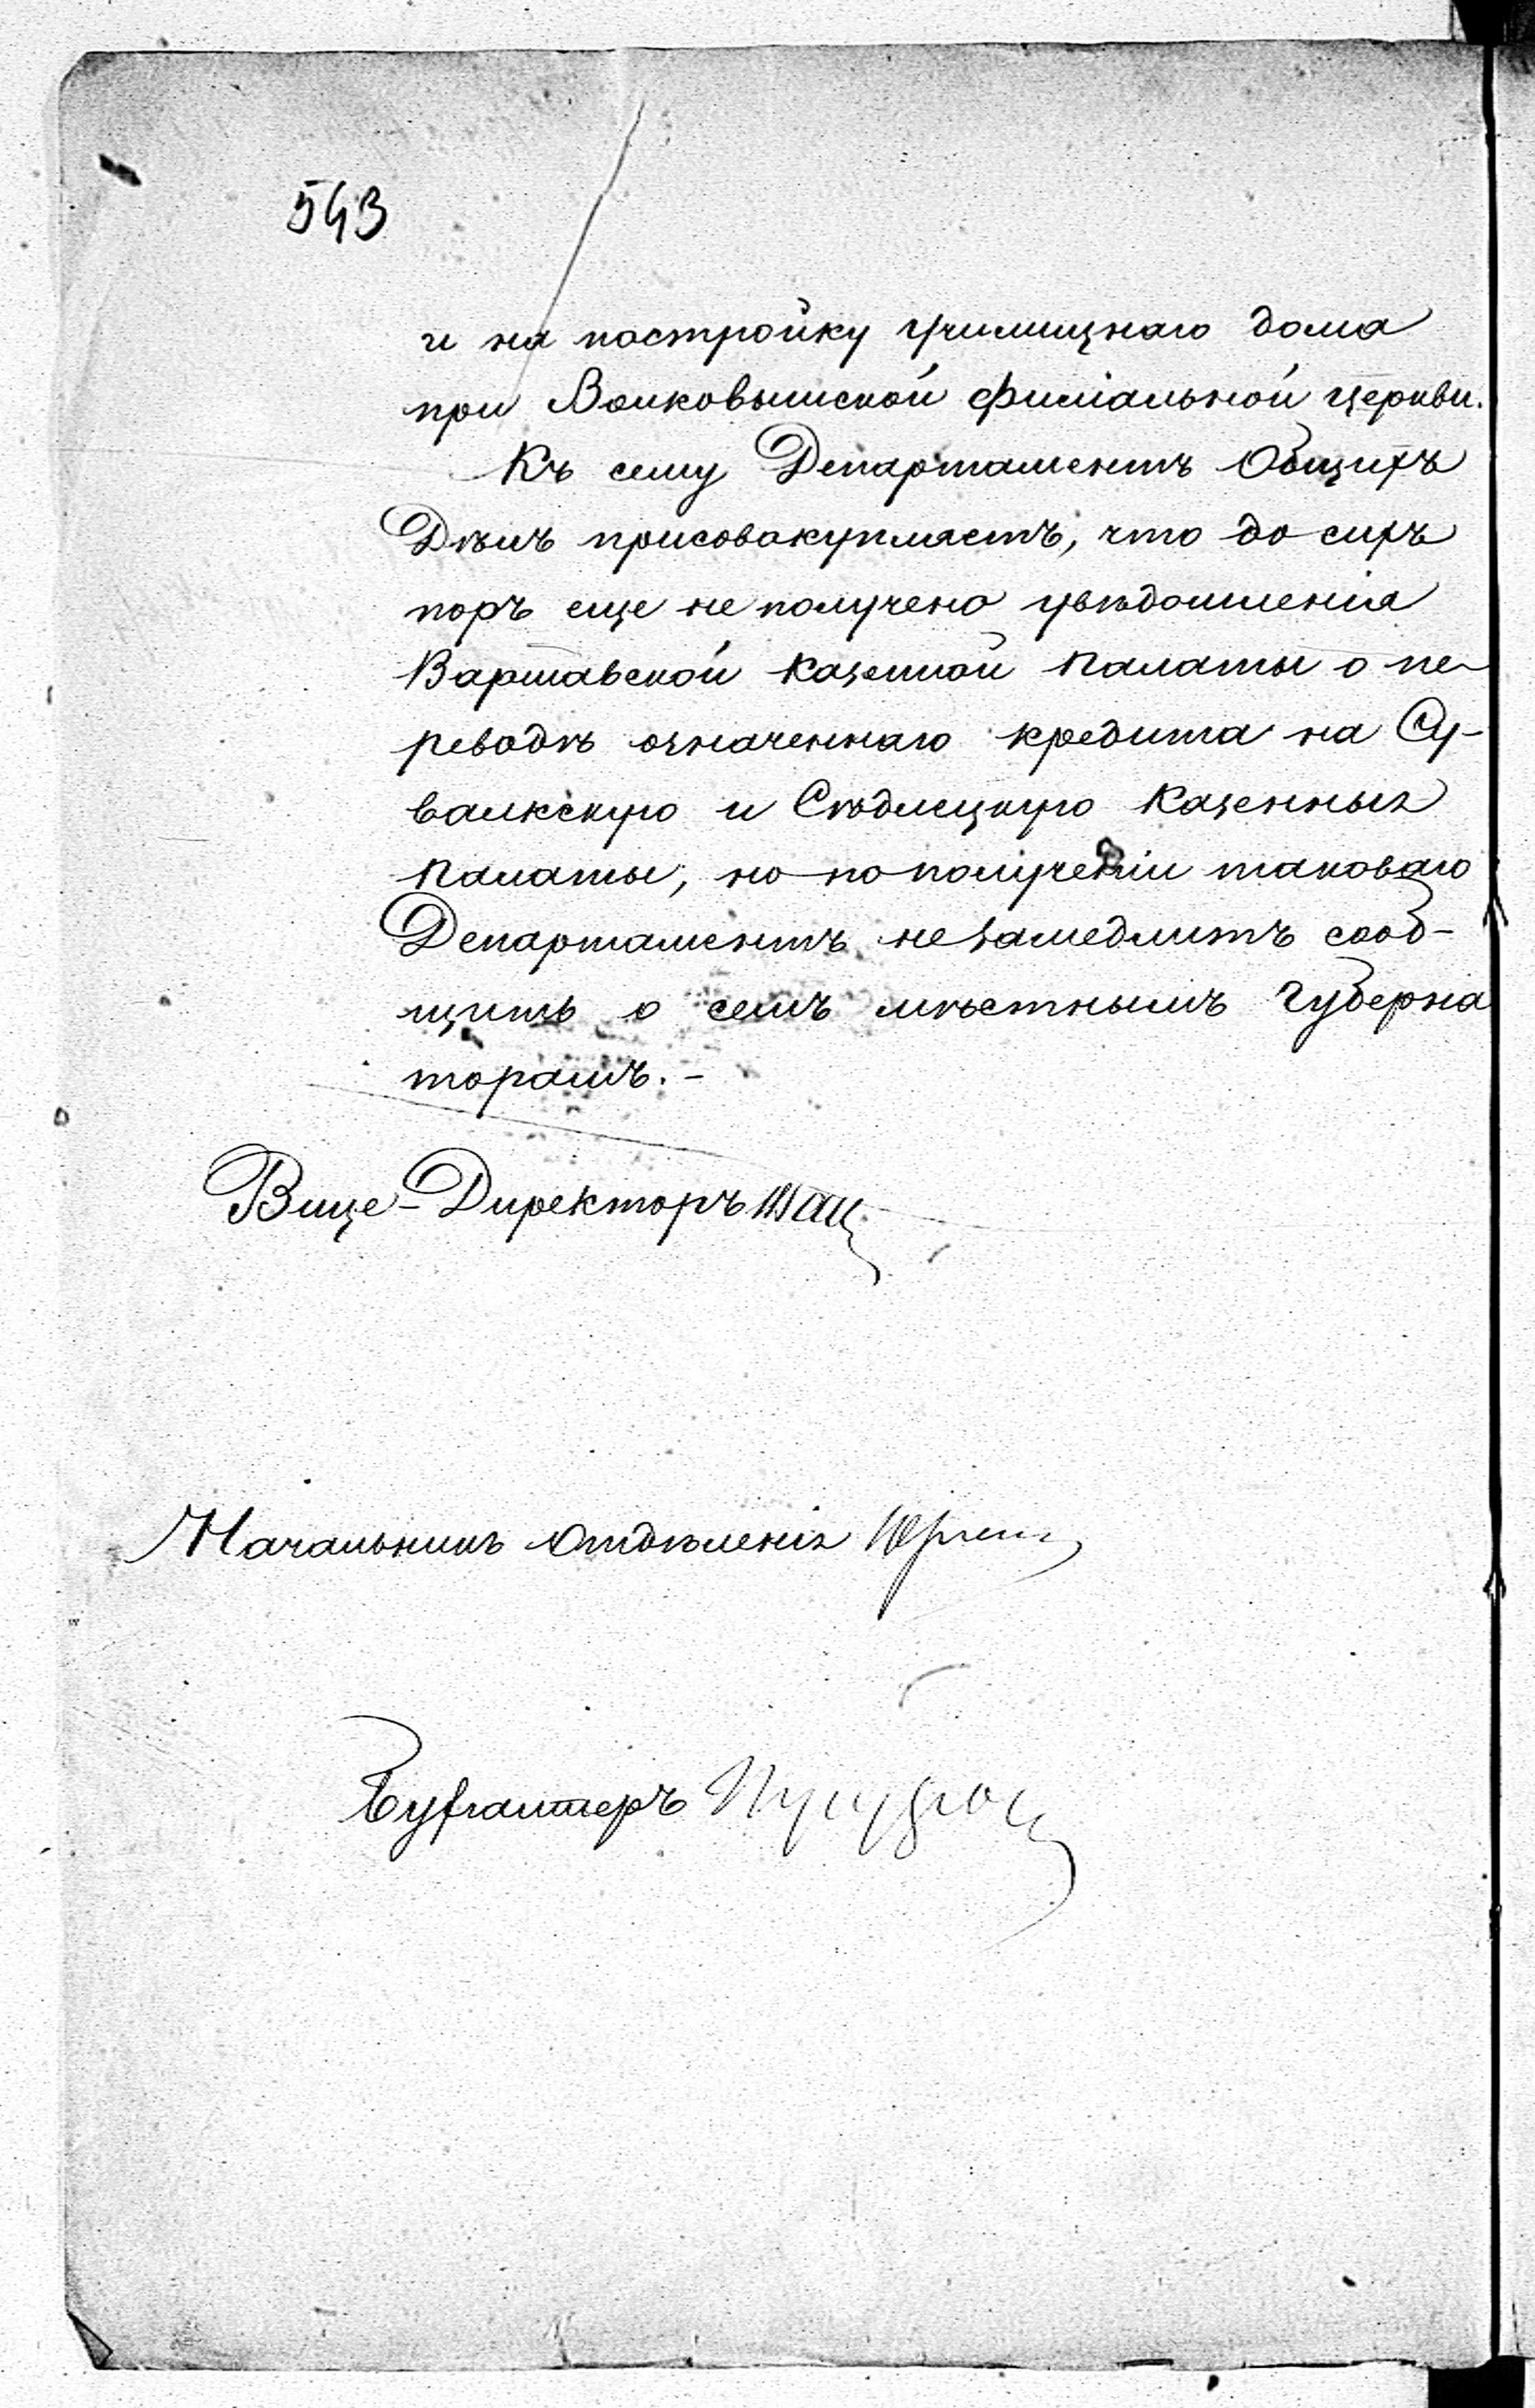 543
и на постройку училищнаго дома
при Волковышской филіальной церкви.
Къ сему Департаментъ Общихъ
Дѣлъ присовокупляетъ, что до сихъ
поръ еще не получено увѣдомленія
Варшавской Казенной Палаты о пе-
реводѣ означеннаго кредита на Су-
валкскую и Сѣдлецкую Казенныя
Палаты, но по полученіи таковаго
Департаментъ незамедлитъ сооб-
щить о семъ мѣстнымъ Губерна
торамъ.-
Вице-Директоръ
Начальникъ Отдѣленія
Бухгалтеръ